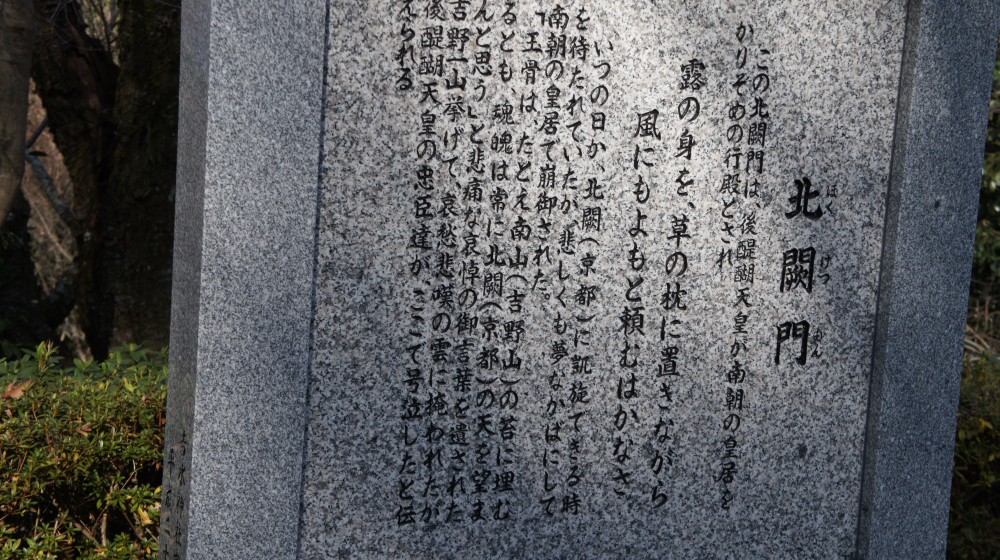 北闕門
ほくけつもん
この北闕門は、後醍醐天皇が南朝の皇居を
かりそめの行殿とされ
露の身を、草の枕に置きながら
風にもよもと頼むはかなさ
いつの日か、北闕(京都)に凱旋できる時
を待たれていたが、悲しくも夢なかばにして
南朝の皇居で崩御された。
「王骨は、たとえ南山(吉野山)の苔に埋む
るとも、魂魄は常に北闕(京都)の天を望ま
んと思う」と悲痛な哀悼の御言葉を遺された
吉野一山挙げて、哀愁悲嘆の雲に掩われたが
後醍醐天皇の忠臣達が、ここで号泣したと伝
えられる